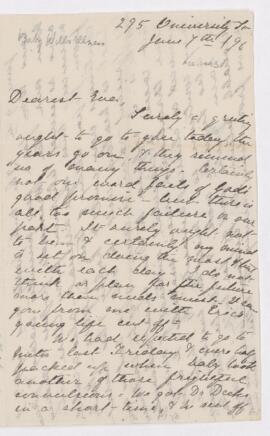 295 University St
June 7th 190
Baby Wells Illness
Dearest Eva,
Surely a greeting
ought to go to you today, the
years go on, & they remind
us of many things. Certainly
not one word fails of God's
good promise - but there is
all too much failure on our
part. It surely ought not
to be & certainly my mind
is set on doing the most I can
with each day. I do not
think or plan for the future
more than needs must.
young life cut off -
We had expected to go to
last Friday & were all
packed up when baby took
another of those frightful
convulsions. We got Dr
in a short time, & he sent off